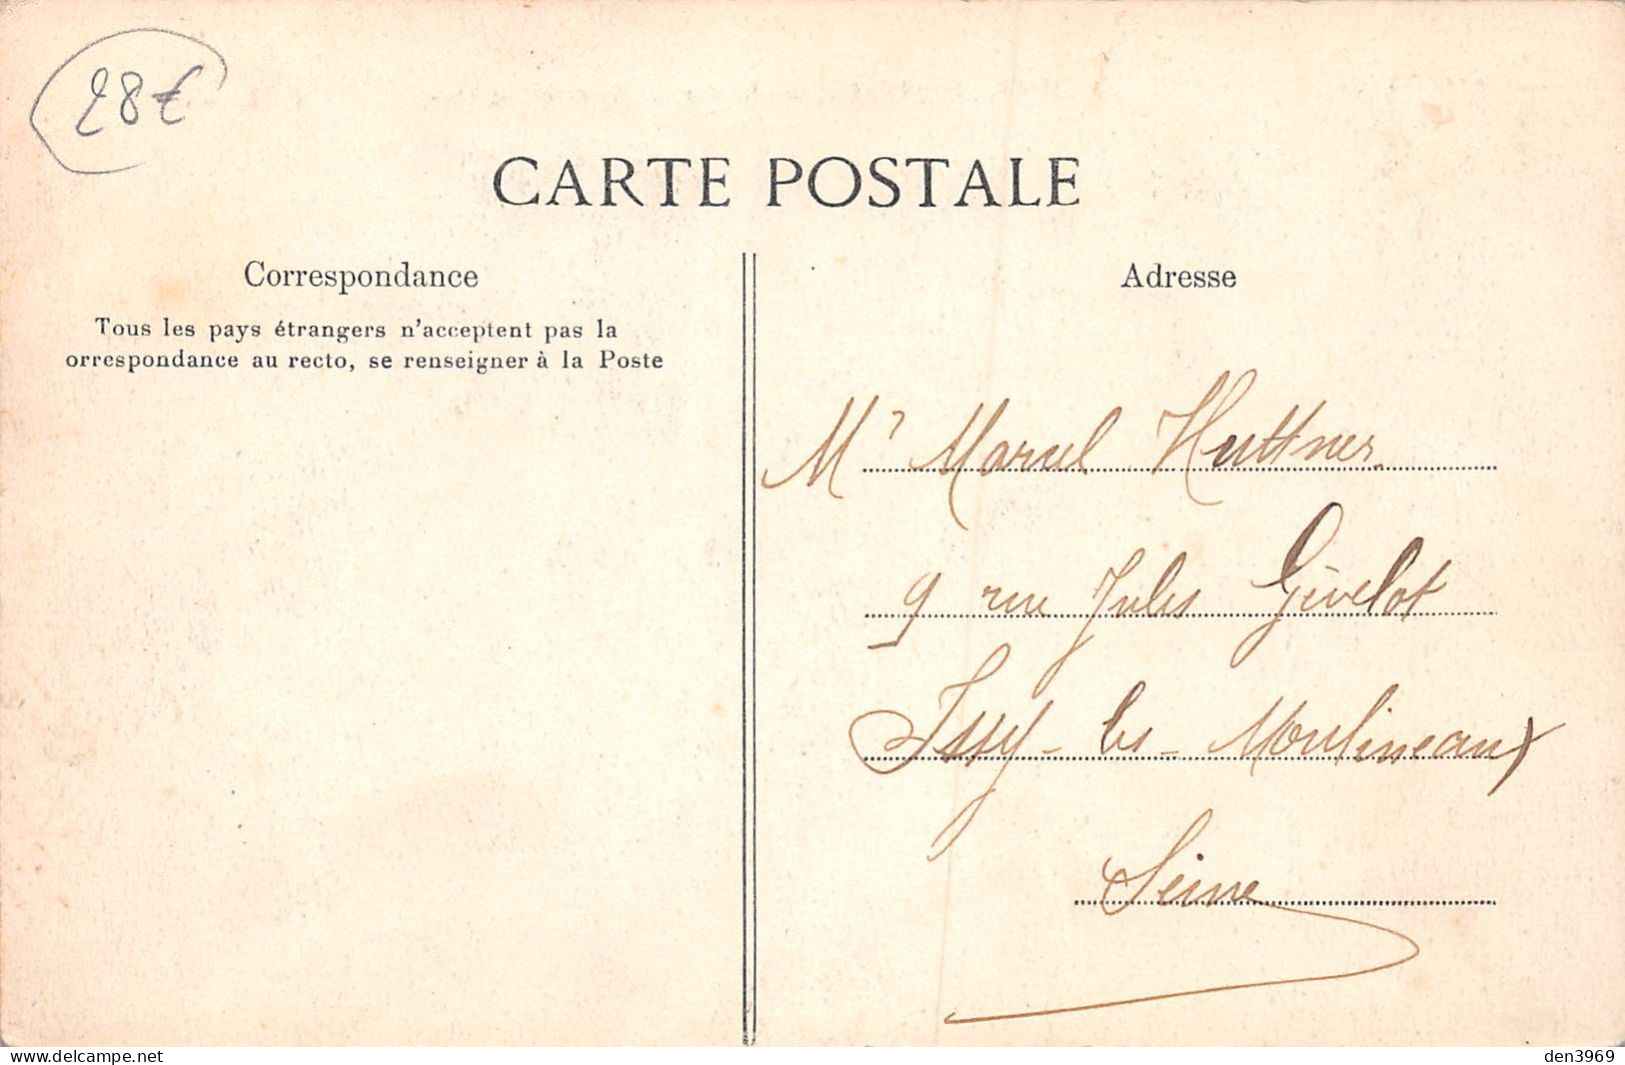 28€
CARTE POSTALE
Correspondance
Tous les pays étrangers n'acceptent pas la
orrespondance au recto, se renseigner à la Poste
Adresse
Mr Marcel Huttner
9 rue Jules Givelot
Issy-les-Moulineaux
Seine
www.delcampe.net
den3969